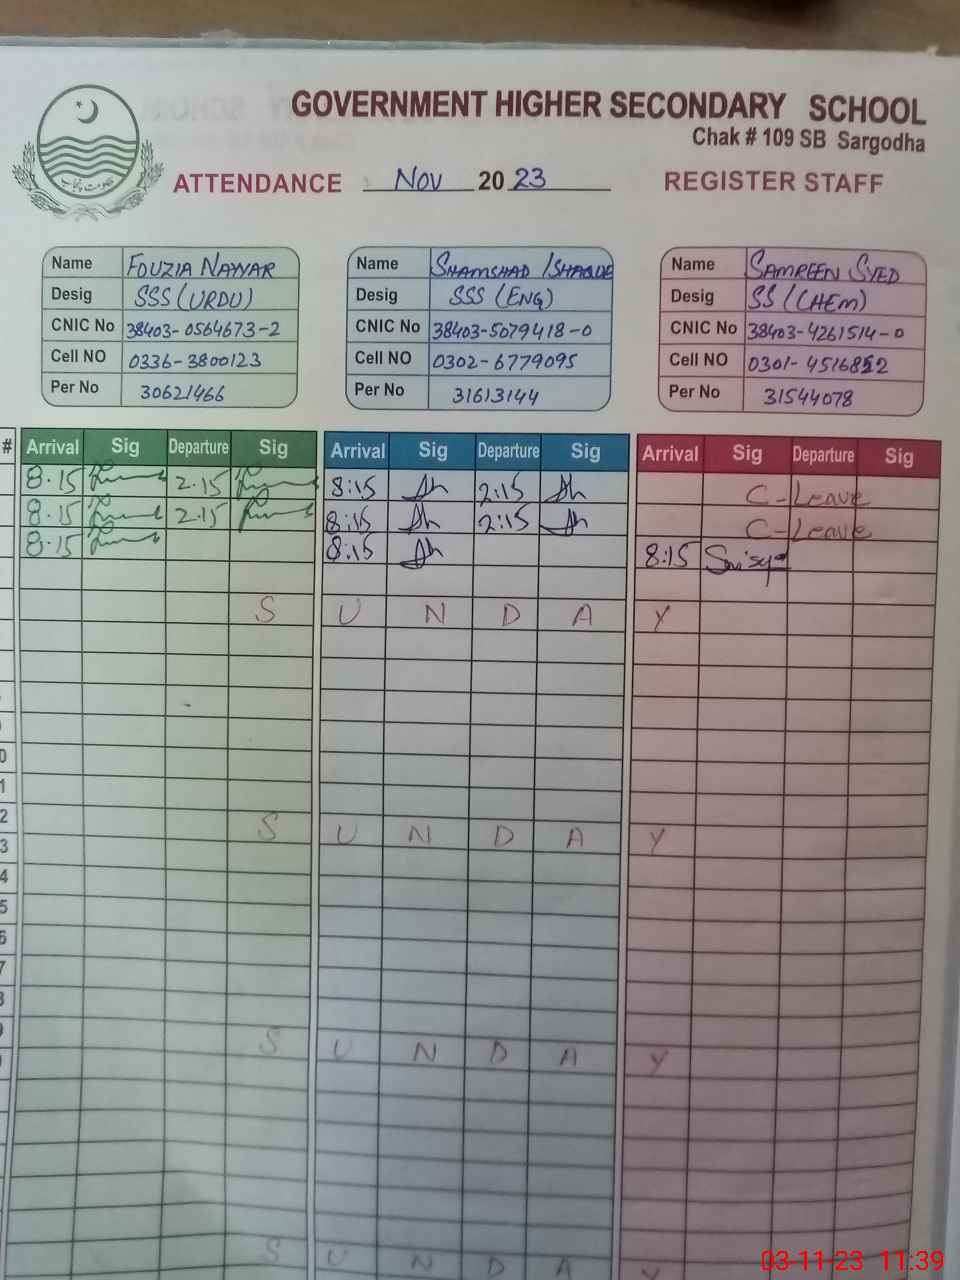 GOVERNMENT HIGHER SECONDARY SCHOOL
Chak # 109 SB Sargodha
ATTENDANCE Nov 2023 REGISTER STAFF
حکومت پنجاب
Name FOUZIA NAYYAR Name SHAMSHAD ISHAQUE Name SAMREEN SYED
Desig SSS (URDU) Desig SSS (ENG) Desig SS (CHEM)
CNIC No 38403-0564673-2 CNIC No 38403-5079418-0 CNIC No 38403-4261514-0
Cell NO 0336-3800123 Cell NO 0302-6779095 Cell NO 0301-4516852
Per No 30621466 Per No 31613144 Per No 31544078
# Arrival Sig Departure Sig Arrival Sig Departure Sig Arrival Sig Departure Sig
8.15 2.15 8:15 2:15 C-Leave
8.15 2.15 8:15 2:15 C-Leave
8.15 8:15 8:15
S U N D A Y
0
1
2
S U N D A Y
3
4
5
6
7
8
9
S U N D A Y
S U N D A Y
03-11-23 11:39